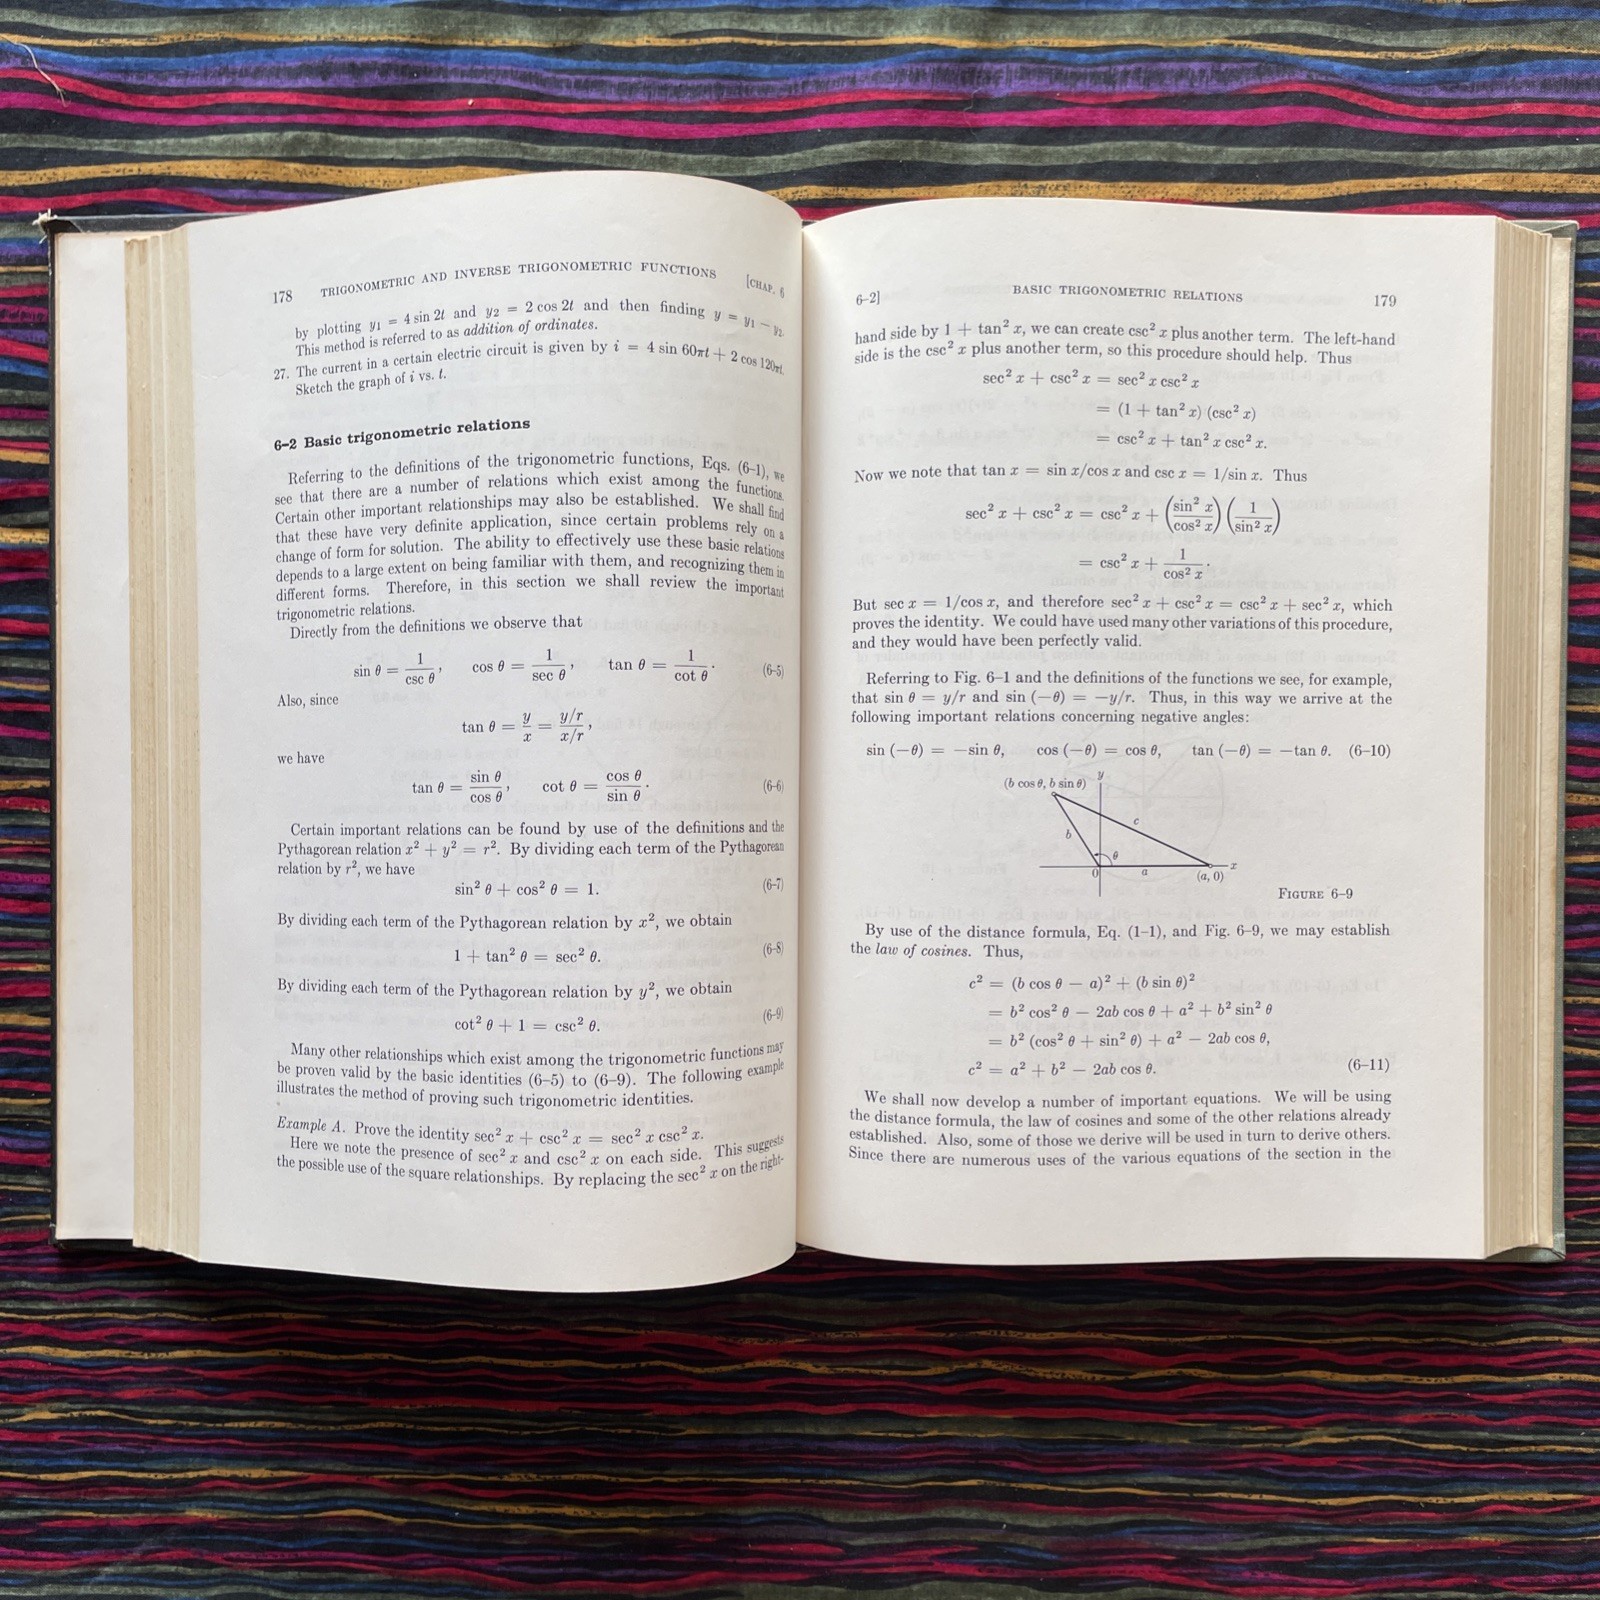 178 TRIGONOMETRIC AND INVERSE TRIGONOMETRIC FUNCTIONS [CHAP. 6
by plotting y₁ = 4 sin 2t and y₂ = 2 cos 2t and then finding y = y₁ − y₂.
This method is referred to as addition of ordinates.
27. The current in a certain electric circuit is given by i = 4 sin 60πt + 2 cos 120πt.
Sketch the graph of i vs. t.
6–2 Basic trigonometric relations
Referring to the definitions of the trigonometric functions, Eqs. (6–1), we
see that there are a number of relations which exist among the functions.
Certain other important relationships may also be established. We shall find
that these have very definite application, since certain problems rely on a
change of form for solution. The ability to effectively use these basic relations
depends to a large extent on being familiar with them, and recognizing them in
different forms. Therefore, in this section we shall review the important
trigonometric relations.
Directly from the definitions we observe that
sin θ = 1/csc θ, cos θ = 1/sec θ, tan θ = 1/cot θ. (6–5)
Also, since
tan θ = y/x = (y/r)/(x/r),
we have
tan θ = sin θ/cos θ, cot θ = cos θ/sin θ. (6–6)
Certain important relations can be found by use of the definitions and the
Pythagorean relation x² + y² = r². By dividing each term of the Pythagorean
relation by r², we have
sin² θ + cos² θ = 1. (6–7)
By dividing each term of the Pythagorean relation by x², we obtain
1 + tan² θ = sec² θ. (6–8)
By dividing each term of the Pythagorean relation by y², we obtain
cot² θ + 1 = csc² θ. (6–9)
Many other relationships which exist among the trigonometric functions may
be proven valid by the basic identities (6–5) to (6–9). The following example
illustrates the method of proving such trigonometric identities.
Example A. Prove the identity sec² x + csc² x = sec² x csc² x.
Here we note the presence of sec² x and csc² x on each side. This suggests
the possible use of the square relationships. By replacing the sec² x on the right-
6–2] BASIC TRIGONOMETRIC RELATIONS 179
hand side by 1 + tan² x, we can create csc² x plus another term. The left-hand
side is the csc² x plus another term, so this procedure should help. Thus
sec² x + csc² x = sec² x csc² x
= (1 + tan² x) (csc² x)
= csc² x + tan² x csc² x.
Now we note that tan x = sin x/cos x and csc x = 1/sin x. Thus
sec² x + csc² x = csc² x + (sin² x/cos² x) (1/sin² x)
= csc² x + 1/cos² x.
But sec x = 1/cos x, and therefore sec² x + csc² x = csc² x + sec² x, which
proves the identity. We could have used many other variations of this procedure,
and they would have been perfectly valid.
Referring to Fig. 6–1 and the definitions of the functions we see, for example,
that sin θ = y/r and sin (−θ) = −y/r. Thus, in this way we arrive at the
following important relations concerning negative angles:
sin (−θ) = −sin θ, cos (−θ) = cos θ, tan (−θ) = −tan θ. (6–10)
(b cos θ, b sin θ) y
c
b
θ
x
0 a (a, 0)
FIGURE 6–9
By use of the distance formula, Eq. (1–1), and Fig. 6–9, we may establish
the law of cosines. Thus,
c² = (b cos θ − a)² + (b sin θ)²
= b² cos² θ − 2ab cos θ + a² + b² sin² θ
= b² (cos² θ + sin² θ) + a² − 2ab cos θ,
c² = a² + b² − 2ab cos θ. (6–11)
We shall now develop a number of important equations. We will be using
the distance formula, the law of cosines and some of the other relations already
established. Also, some of those we derive will be used in turn to derive others.
Since there are numerous uses of the various equations of the section in the